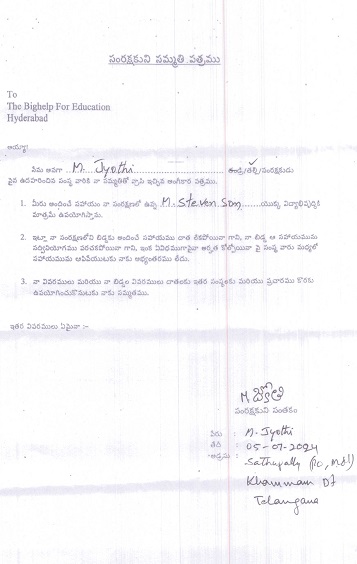 సంరక్షకుని సమ్మతి పత్రము
To
The Bighelp For Education
Hyderabad
అయ్యా!
నేను అనగా M. Jyothi తండ్రి/తల్లి/సంరక్షకుడు
పైన ఉదహరించిన సంస్థ వారికి నా సమ్మతితో వ్రాసి ఇచ్చిన అంగీకార పత్రము.
1. మీరు అందించే సహాయం నా సంరక్షణలో ఉన్న M. Steven Son యొక్క విద్యాభివృద్ధికి
మాత్రమే ఉపయోగిస్తాను.
2. ఇట్లా నా సంరక్షణలోని బిడ్డకు అందించే సహాయము చాత లేకపోయినా గాని, నా బిడ్డ ఆ సహాయమును
సద్వినియోగము పరచకపోయినా గాని, ఇంక ఏవిధముగానైనా అర్హత కోల్పోయినా పై సంస్థ వారు మధ్యలో
సహాయమును ఆపివేయుటకు నాకు అభ్యంతరము లేదు.
3. నా వివరములు మరియు నా బిడ్డల వివరములు దాతలకు ఇతర సంస్థలకు మరియు ప్రచారము కొరకు
ఉపయోగించుకొనుటకు నాకు సమ్మతము.
ఇతర వివరములు ఏమైనా :-
M జ్యోతి
సంరక్షకుని సంతకం
పేరు : M. Jyothi
తేది : 05-07-2024
అడ్రసు : Sathupally (PO, Mdl)
Khammam DT
Telangana